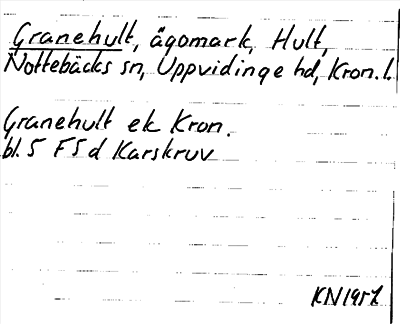 Granehult, ägomark, Hult,
Nottebäcks sn, Uppvidinge hd, Kron.l.
Granehult ek Kron.
bl. 5 F5d Karskruv
KN1957